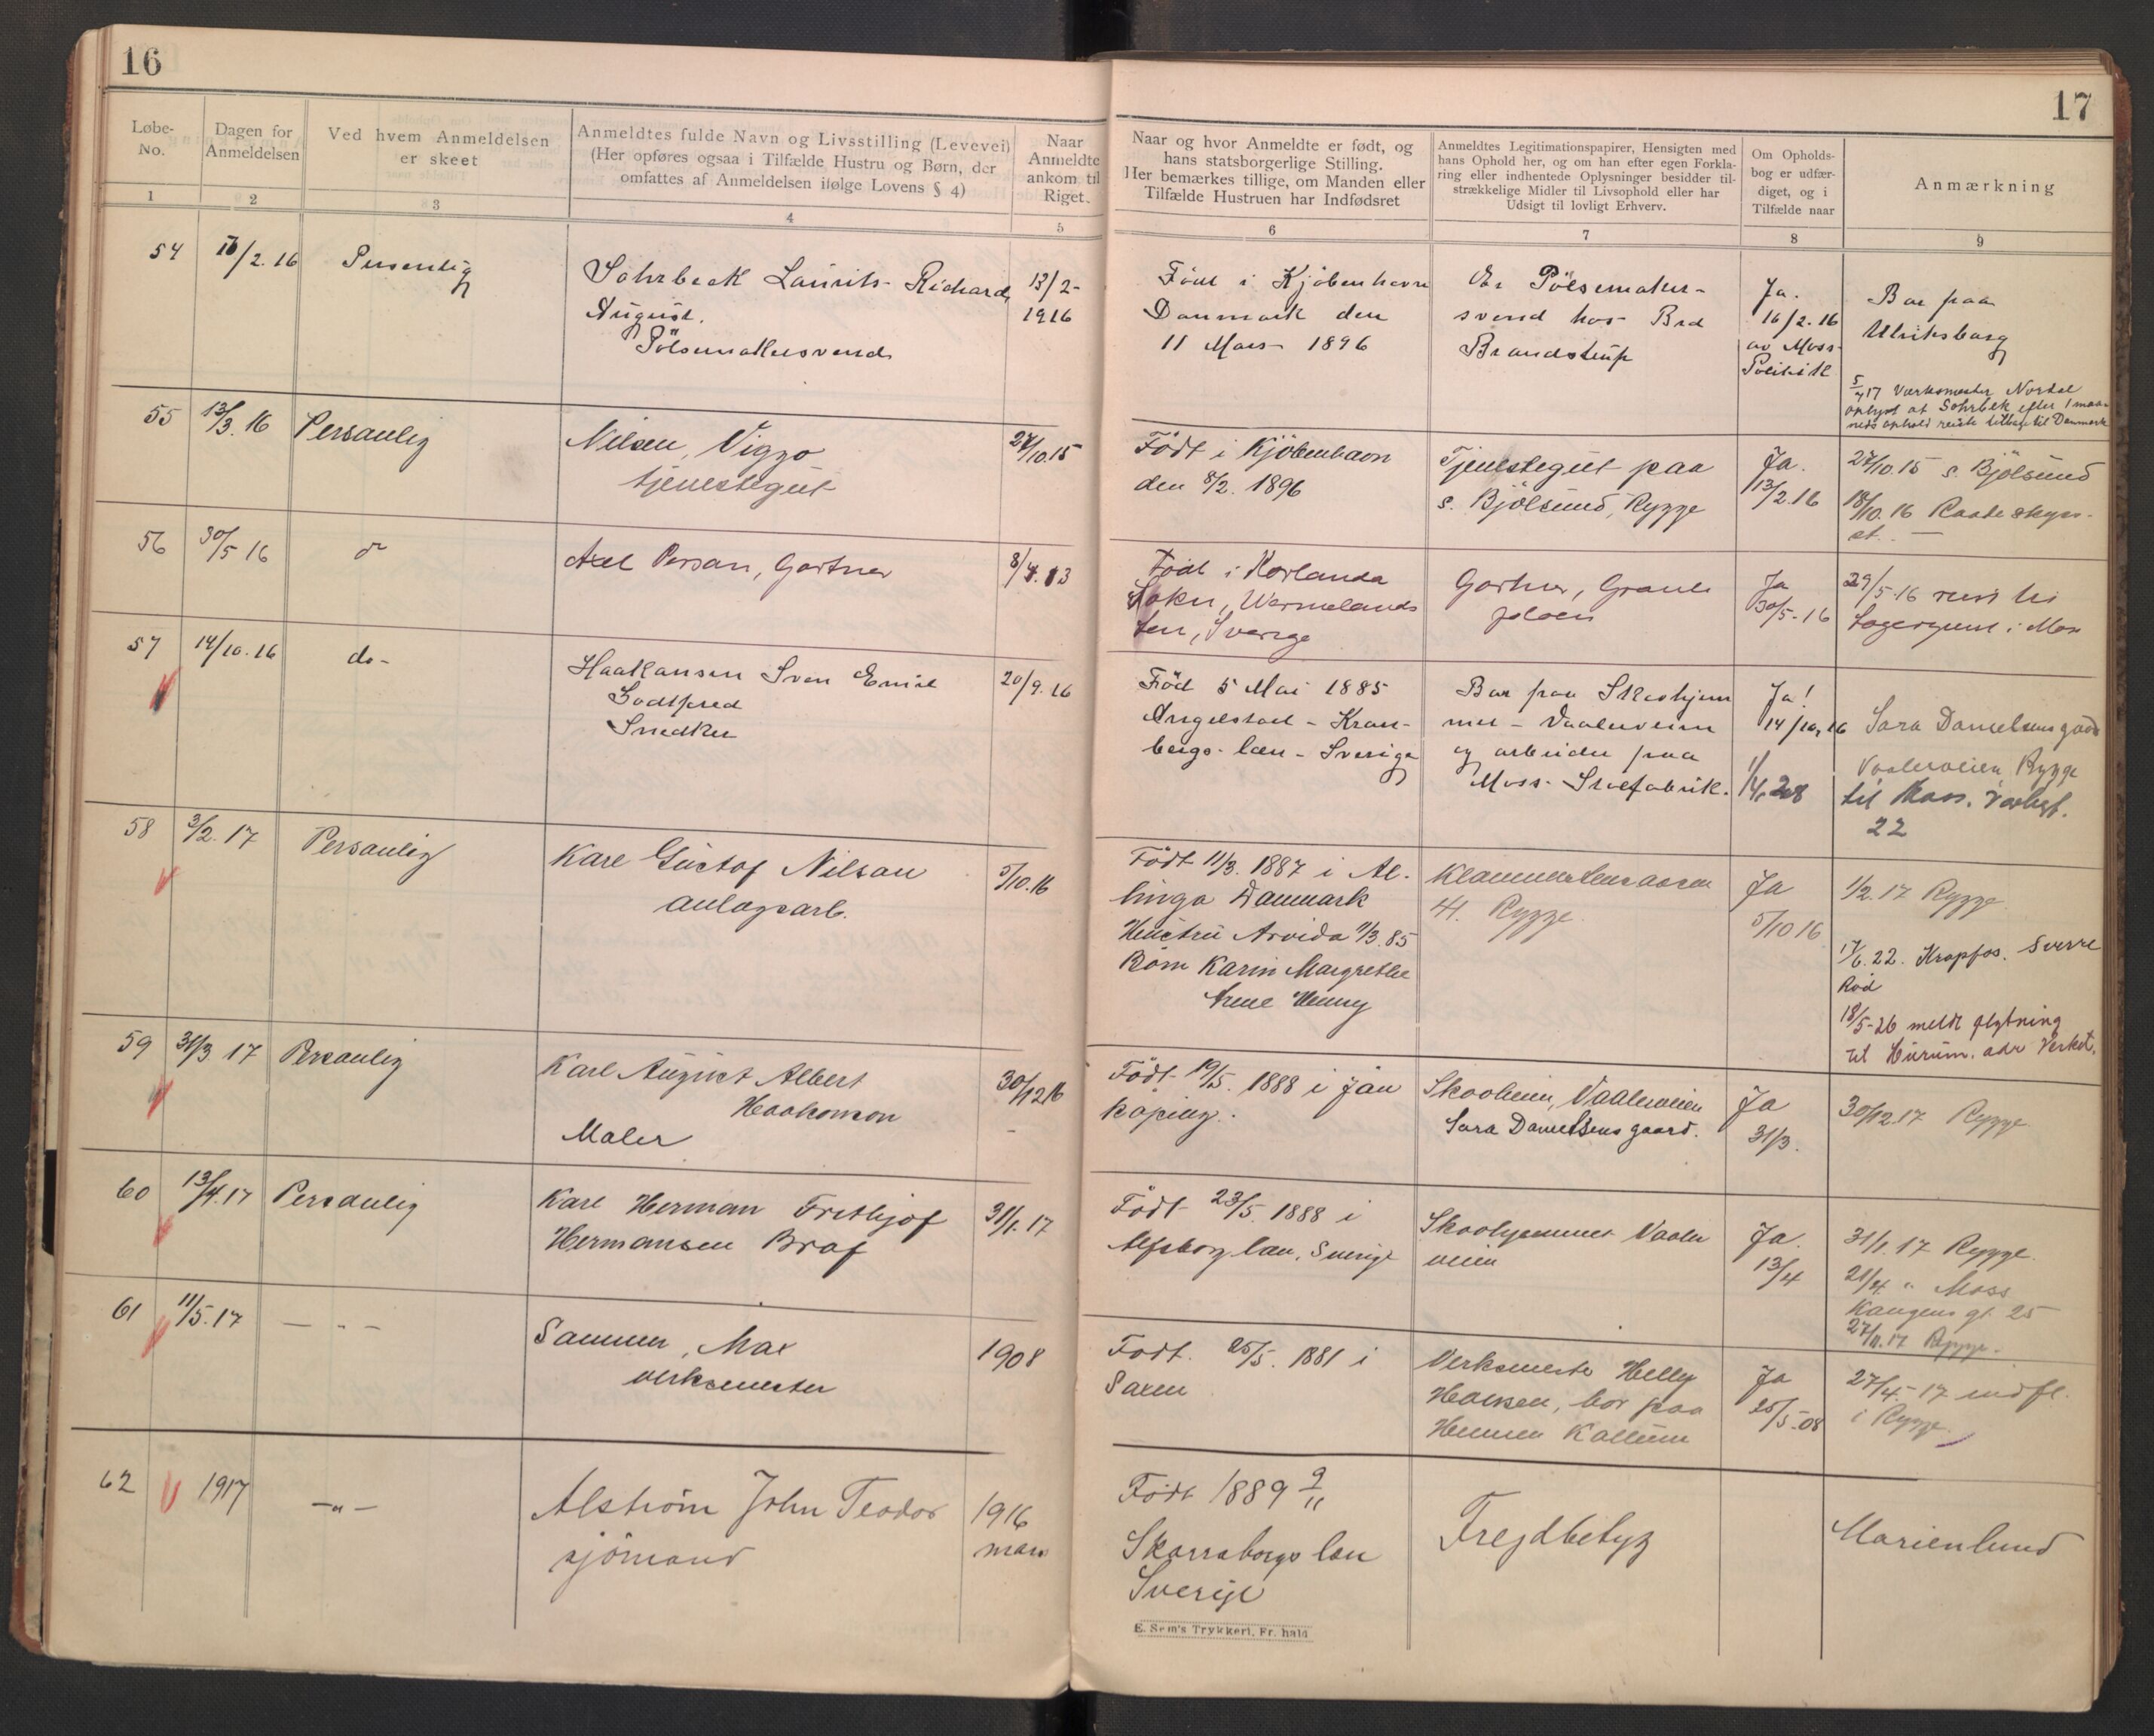 16
Løbe-No.
Dagen for Anmeldelsen
Ved hvem Anmeldelsen er skeet
Anmeldtes fulde Navn og Livsstilling (Levevei)
(Her opføres ogsaa i Tilfælde Hustru og Børn, der
omfattes af Anmeldelsen ifølge Lovens § 4)
Naar Anmeldte ankom til Riget.
1 2 3 4 5
17
Naar og hvor Anmeldte er født, og
hans statsborgerlige Stilling.
Her bemærkes tillige, om Manden eller
Tilfælde Hustruen har Indfødsret
Anmeldtes Legitimationspapirer, Hensigten med
hans Ophold her, og om han efter egen Forkla-
ring eller indhentede Oplysninger besidder til-
strækkelige Midler til Livsophold eller har
Udsigt til lovligt Erhverv.
Om Opholds-
bog er udfær-
diget, og i
Tilfælde naar
Anmærkning
6 7 8 9
54
16/2.16
Personlig
Sohrbeck Laurits Richard
August.
Pölsemakersvend
13/2-
1916
Född i Kjöbenhavn
Danmark den
11 Mars 1896
Pölsemaker-
svend hos Brd
Brandstrup
Ja.
16/2.16
av Moss
Politik
Bor paa
Ulriksborg
17 Værksmester
oplyst at Sohrbek efter 1 maa-
neds ophold reiste tilbage til Danmark
55
13/3.16
Personlig
Nilsen, Viggo
tjenestegut
27/10.15
Født i Kjöbenhavn
den 8/2. 1896
Tjenestegut paa
s. Bjölsund, Rygge
Ja.
13/2.16
27/10.15 s. Bjölsund
18/10.16 Raade
56
30/5 16
do
Axel Person, Gartner
8/4.13
Född i Korlanda
Sokn, Wermelands
len, Sverige
Gartner,
Ja
30/5-16
29/5-16
i Moss
57
14/10.16
do-
Haakansen Sven Emil
Godtfred
Snedker
20/9.16
Född 5 Mai 1885
Angelstad - Kron-
bergs-læn - Sverige
Bor paa Skoghjem
met - Vaalerveien
og arbeider paa
Moss
Ja!
14/10.16
1/4.28
Sara Danielsens gaard
Vaalerveien, Rygge
til Moss.
22
58
3/2.17
Personlig
Karl Gustaf Nilson
anlægsarb.
5/10.16
Født 11/3. 1887 i Al-
linge Danmark
Hustru Arvida 11/3.85
Börn Karin Margrethe
Arne Henry
41. Rygge.
Ja
5/10 16
1/2.17 Rygge
Krapfos. Sverre
Röd
18/5-26 meldt flytning
til Hurum. adr Verket.
59
31/3.17
Personlig
Karl August Albert
Haakonson
Maler
30/12 16
Født 19/5. 1888 i Jön
köping.
Skooheim, Vaalerveien
Sara Danielsens gaard.
Ja
31/3.
30/12.17 Rygge
60
13/4.17
Personlig
Karl Herman Frithjof
Hermansen Braf
31/1.17
Født 23/5. 1888 i
Alfsborg læn, Sverige
Skoohjemmet Vaaler
veien
Ja.
13/4
31/1.17 Rygge.
21/4 " Moss
Kongens gt. 25
27/11.17 Rygge.
61
11/5.17
— " —
Sammer, Max
verksmester
1908
Født. 25/5. 1881 i
Saxen
Verksmester Helly
Hansen, bor paa
Kallum
Ja
25/5-08
27/4-17 indfl.
i Rygge.
62
1917
— " —
Alström John Teodor
sjömand
1916
mars
Født 1889 9/11
Skaraborgs læn
Sverige
Frejdbetyg
Marienlund
E. Sem's Trykkeri, Fr. hald